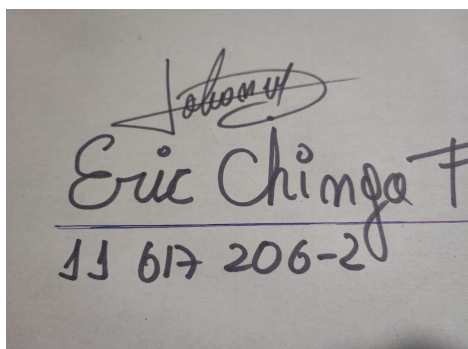 Johanna
Eric Chinga F
11 617 206-2